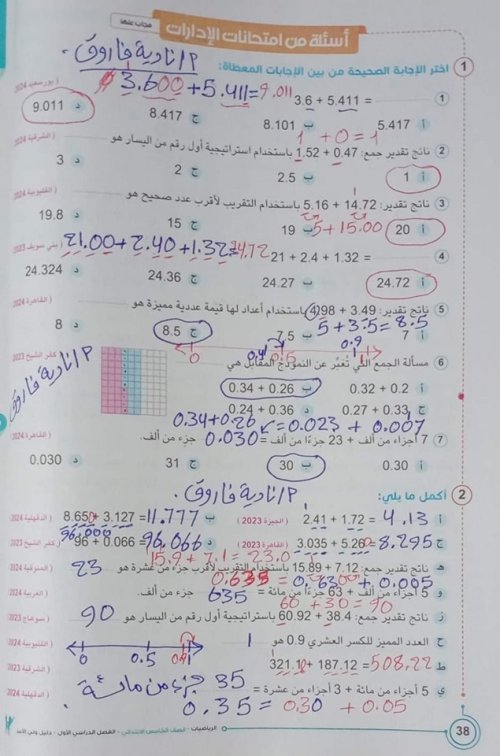 مجاب عنها
أسئلة من امتحانات الإدارات
١/ نادية فاروق
1 اختر الإجابة الصحيحة من بين الإجابات المعطاة:
3.600 + 5.411 = 9.011
1 3.6 + 5.411 = (بورسعيد 2024)
أ 5.417 ب 8.101 ج 8.417 د 9.011
1 + 0 = 1
2 ناتج تقدير جمع: 1.52 + 0.47 باستخدام استراتيجية أول رقم من اليسار هو (الشرقية 2024)
أ 1 ب 2.5 ج 2 د 3
3 ناتج تقدير: 5.16 + 14.72 باستخدام التقريب لأقرب عدد صحيح هو (القليوبية 2024)
أ 20 ب 19 ج 15 د 19.8
5 + 15.00
21.00 + 2.40 + 1.32 = 24.72
4 21 + 2.4 + 1.32 = (بني سويف 2023)
أ 24.72 ب 24.27 ج 24.36 د 24.324
5 ناتج تقدير: 4.98 + 3.49 باستخدام أعداد لها قيمة عددية مميزة هو (القاهرة 2024)
أ 7 ب 7.5 ج 8.5 د 8
5 + 3.5 = 8.5
0 0.5 0.9 1
6 مسألة الجمع التي تُعبِّر عن النموذج المقابل هي (كفر الشيخ 2023)
أ 0.32 + 0.2 ب 0.34 + 0.26
ج 0.27 + 0.33 د 0.24 + 0.36
١/ نادية فاروق
0.34 + 0.26
0.023 + 0.007
7 7 أجزاء من ألف + 23 جزءًا من ألف = 0.030 جزء من ألف. (القاهرة 2024)
أ 0.30 ب 30 ج 31 د 0.030
١/ نادية فاروق
2 أكمل ما يلي:
أ 2.41 + 1.72 = 4.13 (الجيزة 2023)
ب 8.650 + 3.127 = 11.777 (الدقهلية 2024)
ج 3.035 + 5.260 = 8.295 (القاهرة 2024)
96.000
د 96 + 0.066 = 96.066 (كفر الشيخ 2023)
15.9 + 7.1 = 23.0
هـ ناتج تقدير جمع: 15.89 + 7.12 باستخدام التقريب لأقرب جزء من عشرة هو 23 (المنوفية 2024)
0.635 = 0.630 + 0.005
و 5 أجزاء من ألف + 63 جزءًا من مائة = 635 جزء من ألف. (الغربية 2024)
60 + 30 = 90
ز ناتج تقدير جمع: 60.92 + 38.4 باستراتيجية أول رقم من اليسار هو 90 (سوهاج 2023)
ح العدد المميز للكسر العشري 0.9 هو 1 (القليوبية 2024)
0 0.5 0.9 1
ط 321.10 + 187.12 = 508.22 (الشرقية 2023)
ي 5 أجزاء من مائة + 3 أجزاء من عشرة = 35 جزء من مائة (الدقهلية 2024)
0.35 = 0.30 + 0.05
38 الرياضيات - الصف الخامس الابتدائي - الفصل الدراسي الأول - دليل ولي الأمر